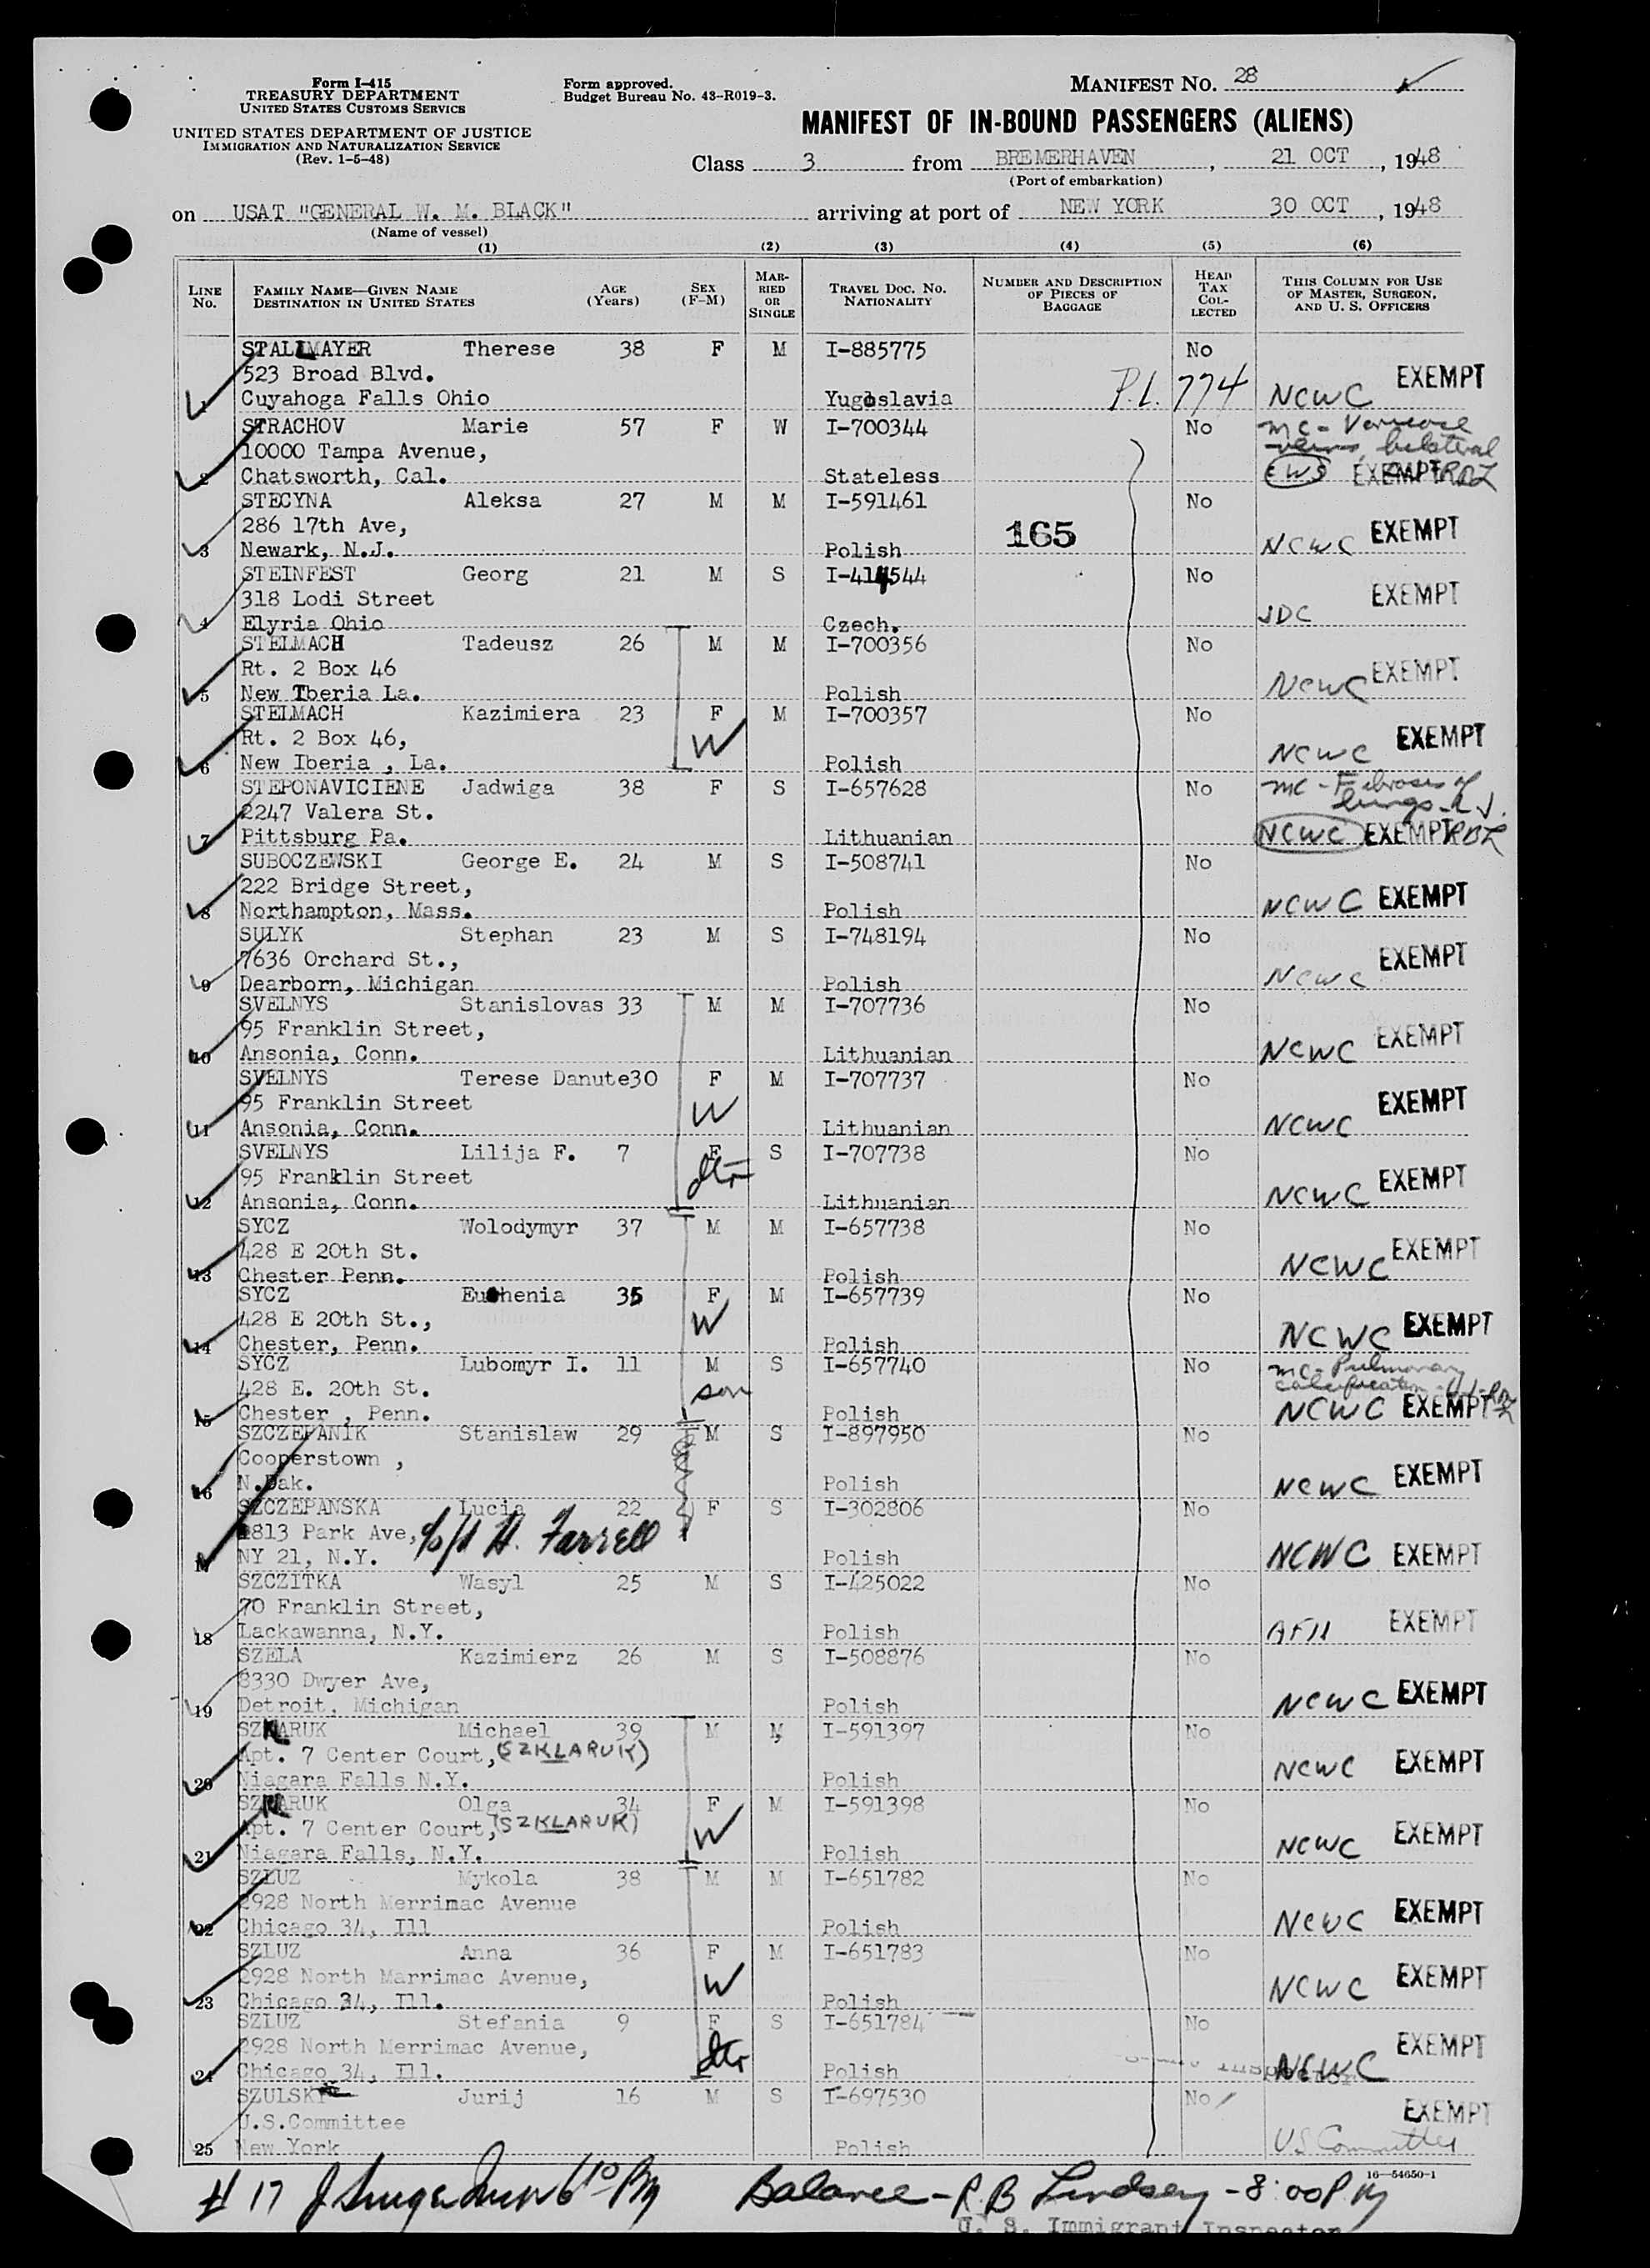 Form I-415
TREASURY DEPARTMENT
UNITED STATES CUSTOMS SERVICE
UNITED STATES DEPARTMENT OF JUSTICE
IMMIGRATION AND NATURALIZATION SERVICE
(Rev. 1-5-48)
Form approved.
Budget Bureau No. 43-R019-3.
MANIFEST NO. 28
MANIFEST OF IN-BOUND PASSENGERS (ALIENS)
Class 3 from BREMERHAVEN, 21 OCT, 1948
(Port of embarkation)
on USAT "GENERAL W. M. BLACK" arriving at port of NEW YORK 30 OCT, 1948
(Name of vessel)
(1) (2) (3) (4) (5) (6)
LINE No.
FAMILY NAME—GIVEN NAME
DESTINATION IN UNITED STATES
AGE (Years)
SEX (F-M)
MARRIED OR SINGLE
TRAVEL DOC. NO.
NATIONALITY
NUMBER AND DESCRIPTION OF PIECES OF BAGGAGE
HEAD TAX COLLECTED
THIS COLUMN FOR USE OF MASTER, SURGEON, AND U. S. OFFICERS
STALLMAYER Therese 38 F M I-885775 No
523 Broad Blvd. EXEMPT
1 Cuyahoga Falls Ohio Yugoslavia P.L. 774 NCWC
STRACHOV Marie 57 F W I-700344 No mc - Varicose
10000 Tampa Avenue, veins, bilateral
2 Chatsworth, Cal. Stateless CWS EXEMPT RBL
STECYNA Aleksa 27 M M I-591461 No
286 17th Ave, 165 EXEMPT
3 Newark, N.J. Polish NCWC
STEINFEST Georg 21 M S I-414544 No
318 Lodi Street EXEMPT
4 Elyria Ohio Czech. JDC
STELMACH Tadeusz 26 M M I-700356 No
Rt. 2 Box 46 EXEMPT
5 New Iberia La. Polish NCWC
STELMACH Kazimiera 23 F M I-700357 No
Rt. 2 Box 46, W EXEMPT
6 New Iberia , La. Polish NCWC
STEPONAVICIENE Jadwiga 38 F S I-657628 No mc - Fibrosis of
2247 Valera St. lungs
7 Pittsburg Pa. Lithuanian NCWC EXEMPT RBL
SUBOCZEWSKI George E. 24 M S I-508741 No
222 Bridge Street,
8 Northampton, Mass. Polish NCWC EXEMPT
SULYK Stephan 23 M S I-748194 No
7636 Orchard St., EXEMPT
9 Dearborn, Michigan Polish NCWC
SVELNYS Stanislovas 33 M M I-707736 No
95 Franklin Street, EXEMPT
10 Ansonia, Conn. Lithuanian NCWC
SVELNYS Terese Danute 30 F M I-707737 No
95 Franklin Street W EXEMPT
11 Ansonia, Conn. Lithuanian NCWC
SVELNYS Lilija F. 7 F S I-707738 No
95 Franklin Street dtr EXEMPT
12 Ansonia, Conn. Lithuanian NCWC
SYCZ Wolodymyr 37 M M I-657738 No
428 E 20th St. EXEMPT
13 Chester Penn. Polish NCWC
SYCZ Euhenia 35 F M I-657739 No
428 E 20th St., W EXEMPT
14 Chester, Penn. Polish NCWC
SYCZ Lubomyr I. 11 M S I-657740 No mc - Pulmonary
428 E. 20th St. son calcification
15 Chester , Penn. Polish NCWC EXEMPT
SZCZEPANIK Stanislaw 29 M S I-897950 No
Cooperstown ,
16 N.Dak. Polish NCWC EXEMPT
SZCZEPANSKA Lucia 22 F S I-302806 No
1813 Park Ave, H. Farrell
17 NY 21, N.Y. Polish NCWC EXEMPT
SZCZITKA Wasyl 25 M S I-425022 No
70 Franklin Street, EXEMPT
18 Lackawanna, N.Y. Polish
SZELA Kazimierz 26 M S I-508876 No
8330 Dwyer Ave,
19 Detroit, Michigan Polish NCWC EXEMPT
SZKLARUK Michael 39 M M I-591397 No
Apt. 7 Center Court, (SZKLARUK) EXEMPT
20 Niagara Falls N.Y. Polish NCWC
SZKLARUK Olga 34 F M I-591398 No
Apt. 7 Center Court, (SZKLARUK) W EXEMPT
21 Niagara Falls, N.Y. Polish NCWC
SZLUZ Mykola 38 M M I-651782 No
2928 North Merrimac Avenue EXEMPT
22 Chicago 34, Ill Polish NCWC
SZLUZ Anna 36 F M I-651783 No
2928 North Marrimac Avenue, W EXEMPT
23 Chicago 34, Ill. Polish NCWC
SZLUZ Stefania 9 F S I-651784 No
2928 North Merrimac Avenue, dtr EXEMPT
24 Chicago 34, Ill. Polish NCWC
SZULSKY Jurij 16 M S I-697530 No
U.S.Committee EXEMPT
25 New York Polish US Committee
16-54650-1
# 17 6 10 PM Balance - R. B Lindsey - 8:00 PM
U. S. Immigrant Inspector